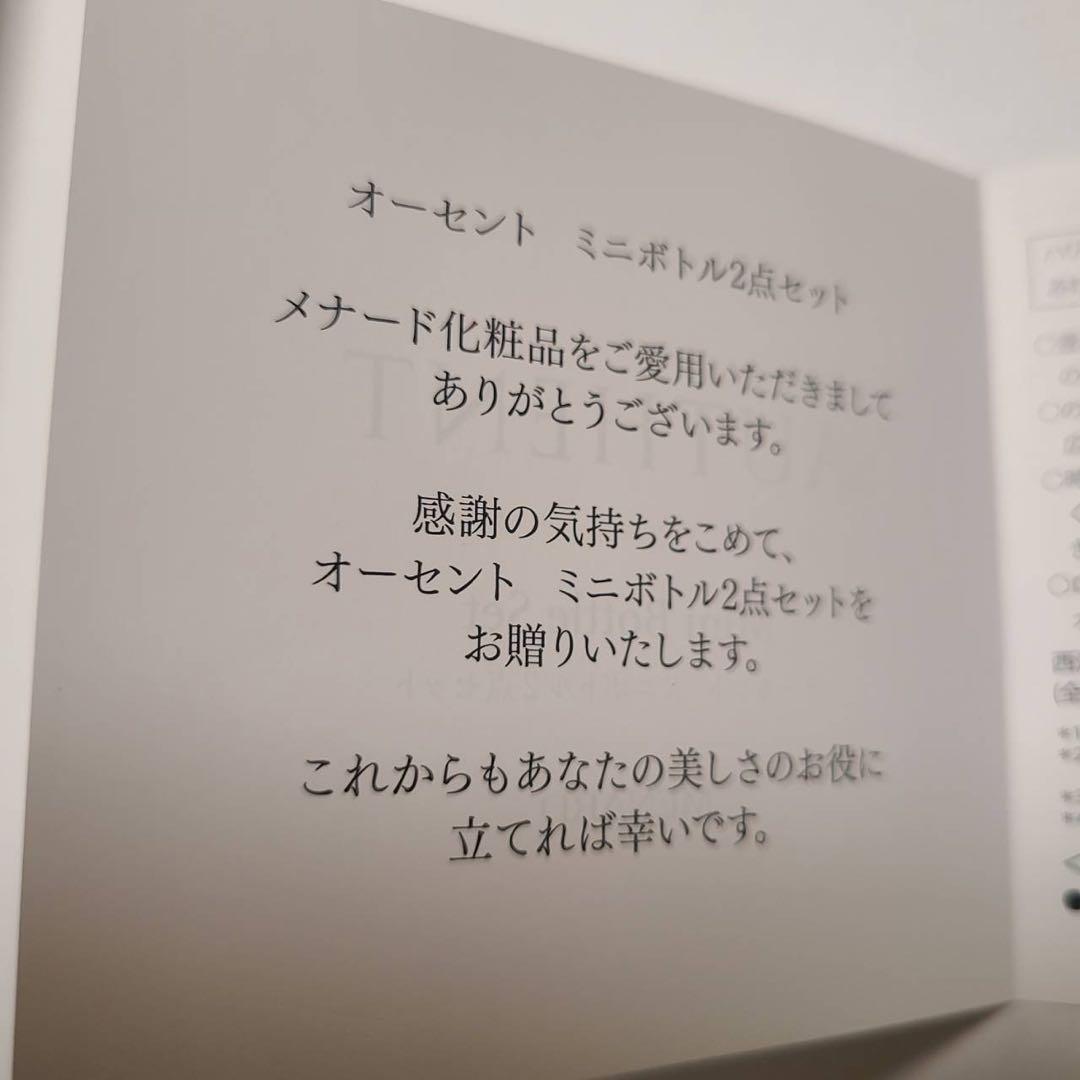 オーセント　ミニボトル2点セット
メナード化粧品をご愛用いただきまして
ありがとうございます。
感謝の気持ちをこめて、
オーセント　ミニボトル2点セットを
お贈りいたします。
これからもあなたの美しさのお役に
立てれば幸いです。